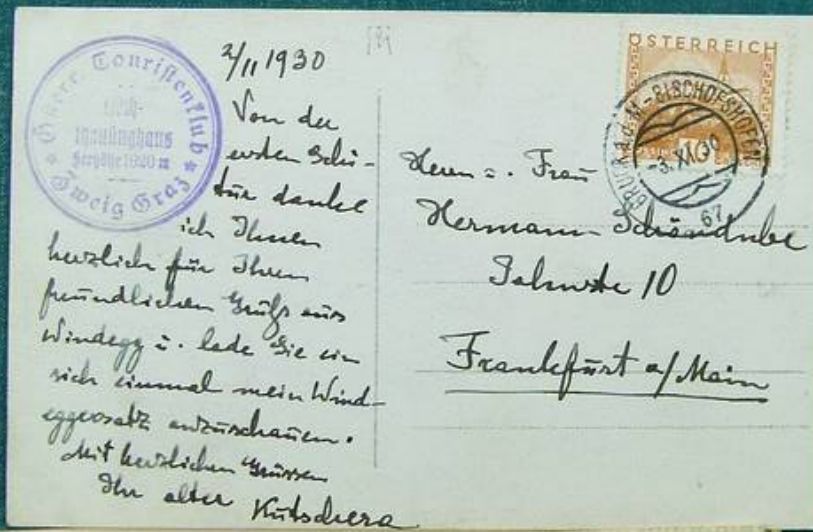 Österr. Touristenklub
Seehöhe 1920 m
Zweig Graz
2/11 1930
Von der
ersten Schi-
tur danke
ich Ihnen
herzlich für Ihren
freundlichen Gruß aus
Windegg u. lade Sie ein
sich einmal mein Wind-
eggersatz anzuschauen.
Mit herzlichen Grüssen
Ihr alter Kutschera
ÖSTERREICH
10
BRUCK a.d. M-BISCHOFSHOFEN
-3.XI.30
67
Herrn u. Frau
Hermann
10
Frankfurt a/Main